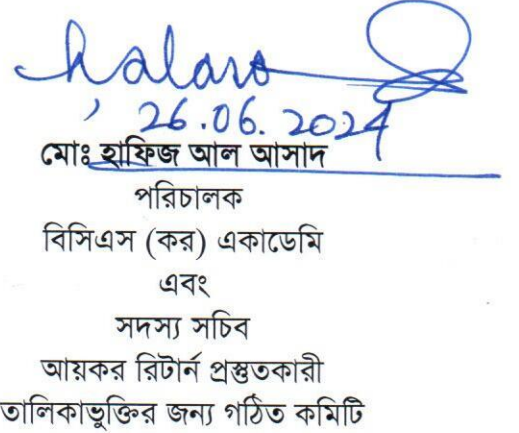 26.06.2024
মোঃ হাফিজ আল আসাদ
পরিচালক
বিসিএস (কর) একাডেমি
এবং
সদস্য সচিব
আয়কর রিটার্ন প্রস্তুতকারী
তালিকাভুক্তির জন্য গঠিত কমিটি